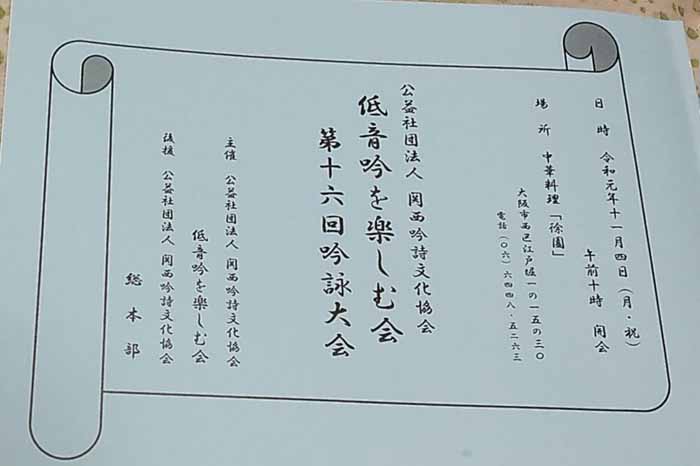 日時 令和元年十一月四日(月・祝)
午前十時 開会
場所 中華料理「徐園」
大阪市西区江戸堀一の一五の三〇
電話(〇六)六四四八・五二六三
公益社団法人 関西吟詩文化協会
低音吟を楽しむ会
第十六回吟詠大会
主催 公益社団法人 関西吟詩文化協会
低音吟を楽しむ会
後援 公益社団法人 関西吟詩文化協会
総本部